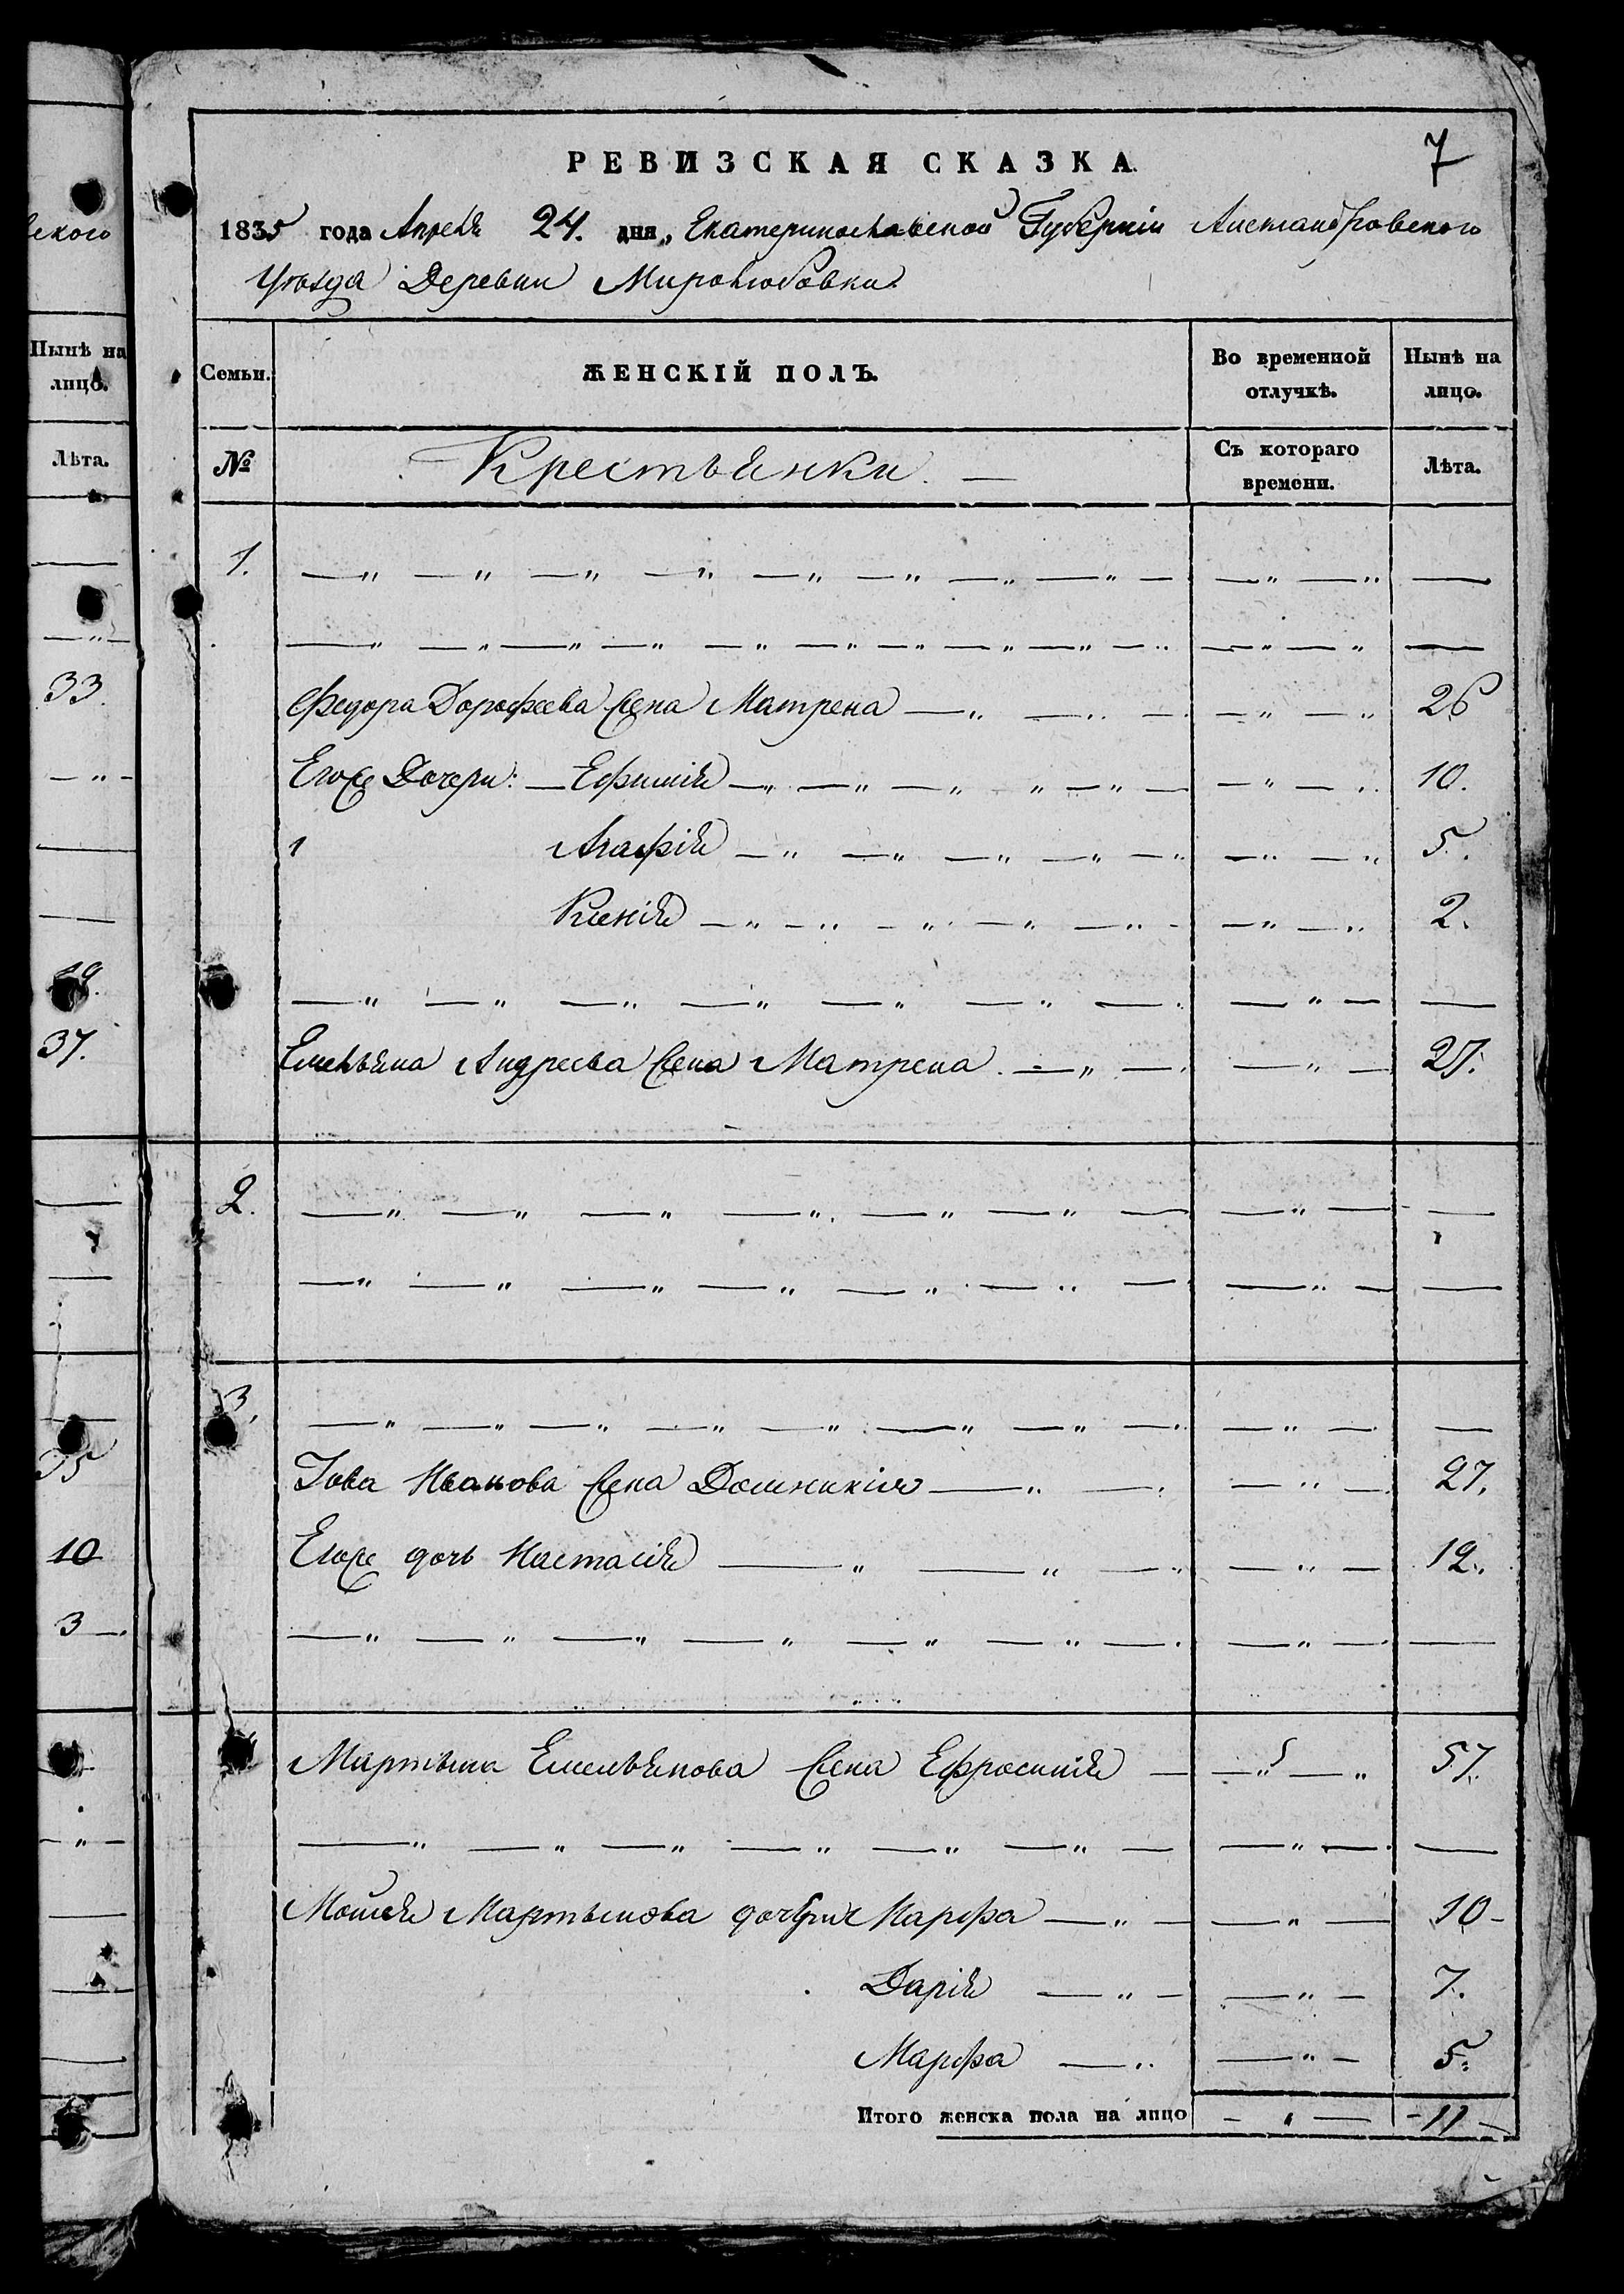 РЕВИЗСКАЯ СКАЗКА.
7
1835 года Апреля 24. дня, Екатеринославской Губерніи Александровского
Уѣзда Деревни Миролюбовки
Семьи.
ЖЕНСКІЙ ПОЛЪ.
Во временной отлучкѣ.
Нынѣ на лицо.
№
Крестьянки. —
Съ котораго времени.
Лѣта.
1.
Федора Дорофеева жена Матрена 26
Егоже Дочери: Ефимія 10.
Агафія 5.
Ксенія 2.
Емельяна Андреева жена Матрена. 27.
2.
3.
Іова Иванова жена Домникія 27.
Егоже дочь Настасія 12.
Мартына Емельянова жена Ефросинія 57.
Мойсея Мартынова дочери Марфа 10
Дарія 7.
Марфа 5.
Итого женска пола на лицо 11
ского
Нынѣ на
лицо.
Лѣта.
33.
37.
10
3